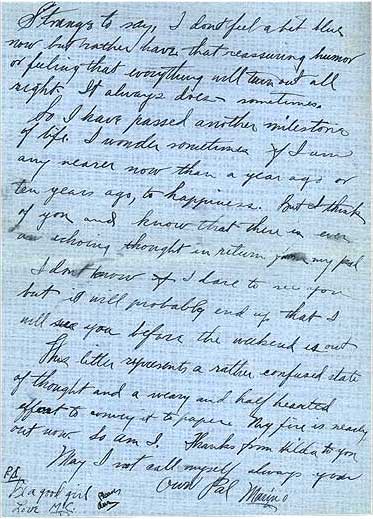 Strange to say, I don't feel a bit blue
now but rather have that reassuring humor
or feeling that everything will turn out all
right. It always does – sometimes.
So I have passed another milestone
of life. I wonder sometimes if I am
any nearer now than a year ago or
ten years ago, to happiness. But I think
of you and know that there is ever
an echoing thought in return from my pal
I don't know if I dare to see you
but it will probably end up that I
will see you before the weekend is out
This letter represents a rather confused state
of thought and a weary and half hearted
effort to convey it to paper. My fire is nearly
out now so am I. Thanks from Hilda to you
May I not call myself always your
Own Pal
P.S.
Be a good girl
Love